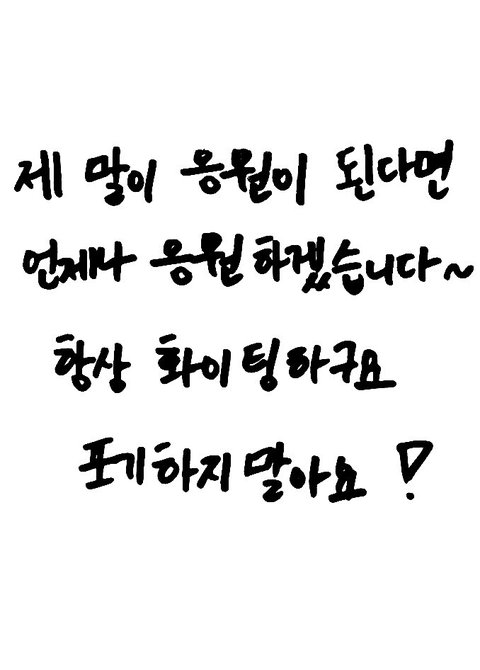 제 말이 응원이 된다면
언제나 응원하겠습니다~
항상 화이팅하구요
포기하지말아요!